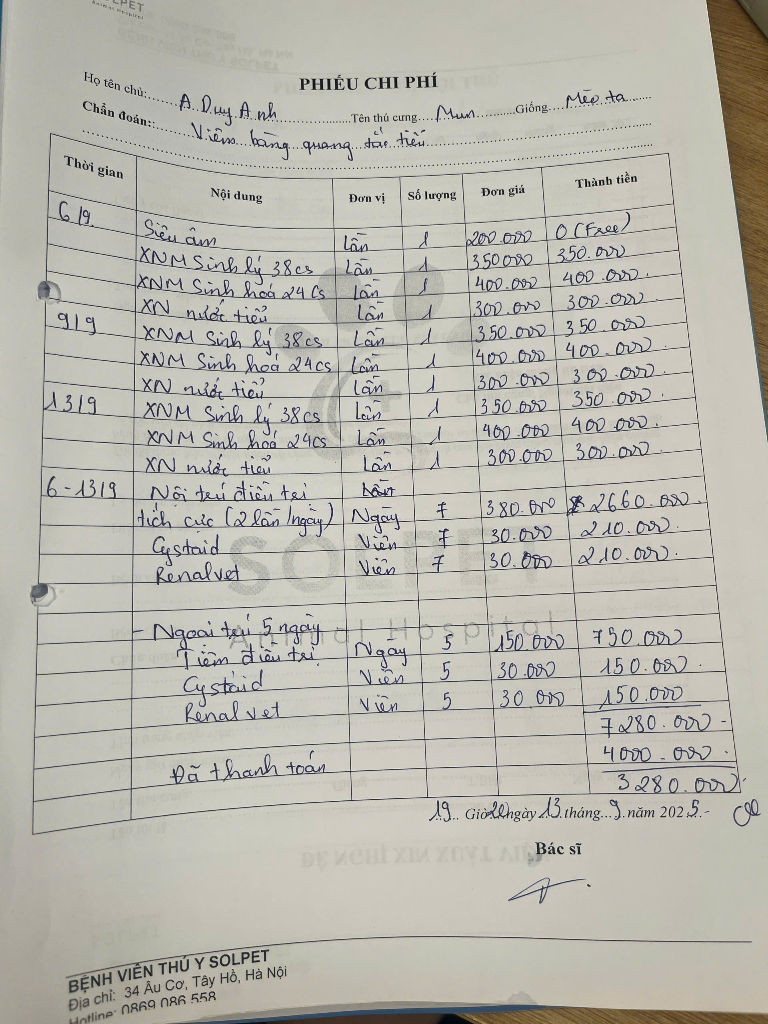 SOLPET
Animal Hospital
PHIẾU CHI PHÍ
Họ tên chủ: A. Duy Anh Tên thú cưng Mun Giống Mèo ta
Chẩn đoán: Viêm bàng quang tắc tiểu
Thời gian Nội dung Đơn vị Số lượng Đơn giá Thành tiền
6/9 Siêu âm Lần 1 200.000 0 (Free)
XNM Sinh lý 38cs Lần 1 350000 350.000
XNM Sinh hoá 24cs Lần 1 400.000 400.000
XN nước tiểu Lần 1 300.000 300.000
9/9 XNM Sinh lý 38cs Lần 1 350.000 350.000
XNM Sinh hoá 24cs Lần 1 400.000 400.000
XN nước tiểu Lần 1 300.000 300.000
13/9 XNM Sinh lý 38cs Lần 1 350.000 350.000
XNM Sinh hoá 24cs Lần 1 400.000 400.000
XN nước tiểu Lần 1 300.000 300.000
6-13/9 Nội trú điều trị Lần
tích cực (2 lần/ngày) Ngày 7 380.000 2660.000
Cystaid Viên 7 30.000 210.000
Renalvet Viên 7 30.000 210.000
SOLPET
Animal Hospital
- Ngoại trú 5 ngày
Tiêm điều trị Ngày 5 150.000 750.000
Cystaid Viên 5 30.000 150.000
Renalvet Viên 5 30.000 150.000
7280.000
Đã thanh toán 4000.000
3280.000
19 Giờ 20 ngày 13 tháng 9 năm 2025
Bác sĩ
BỆNH VIỆN THÚ Y SOLPET
Địa chỉ: 34 Âu Cơ, Tây Hồ, Hà Nội
Hotline: 0869 086 558